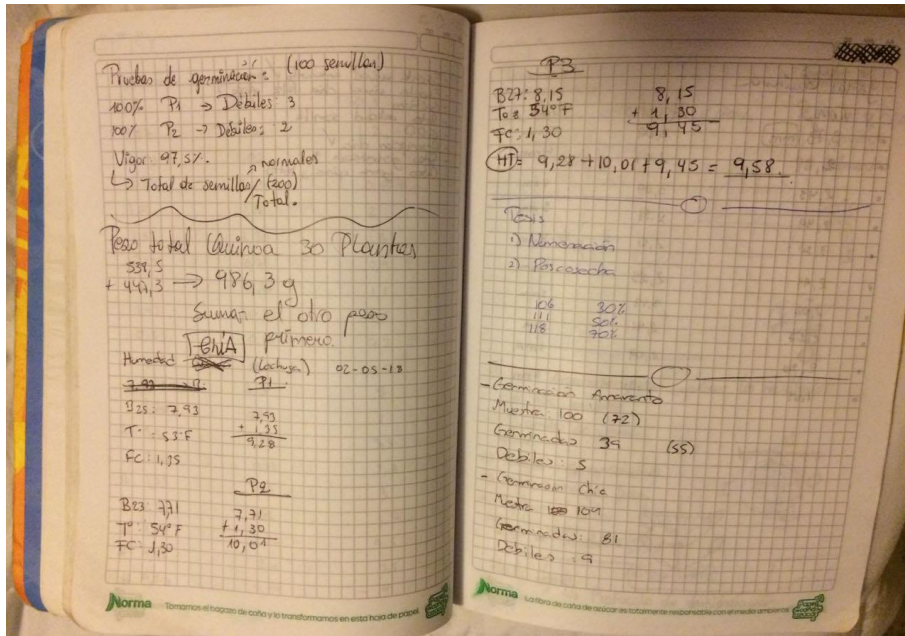 Pruebas de germinación: (100 semillas)
100% P1 → Débiles 3
100% P2 → Débiles: 2
Vigor: 97,5%.
↳ Total de semillas normales / (200) Total.
Peso total Quinoa 30 Plantas
538,5
+ 447,3 → 986,3 g
Sumar el otro peso
primero.
Humedad ChiA (Lechuga) 02-05-18
P1
B25: 7,93
T°: 53°F
FC: 1,35
7,93
+ 1,35
9,28
P2
B23: 7,71
T°: 54°F
FC: 1,30
7,71
+ 1,30
10,01
Norma Tomamos el bagazo de caña y lo transformamos en esta hoja de papel
P3
B27: 8,15
T° = 54°F
FC: 1,30
8,15
+ 1,30
9,45
HT = 9,28 + 10,01 + 9,45 = 9,58.
Tesis
1) Numeración
2) Poscosecha
106 30%
111 50%
118 70%
- Germinación Amaranto
Muestra 100 (72)
Germinadas 39 (55)
Débiles: 5
- Germinación Chia
Muestra 104
Germinadas: 81
Débiles: 9
Norma La fibra de caña de azúcar es totalmente responsable con el medio ambiente